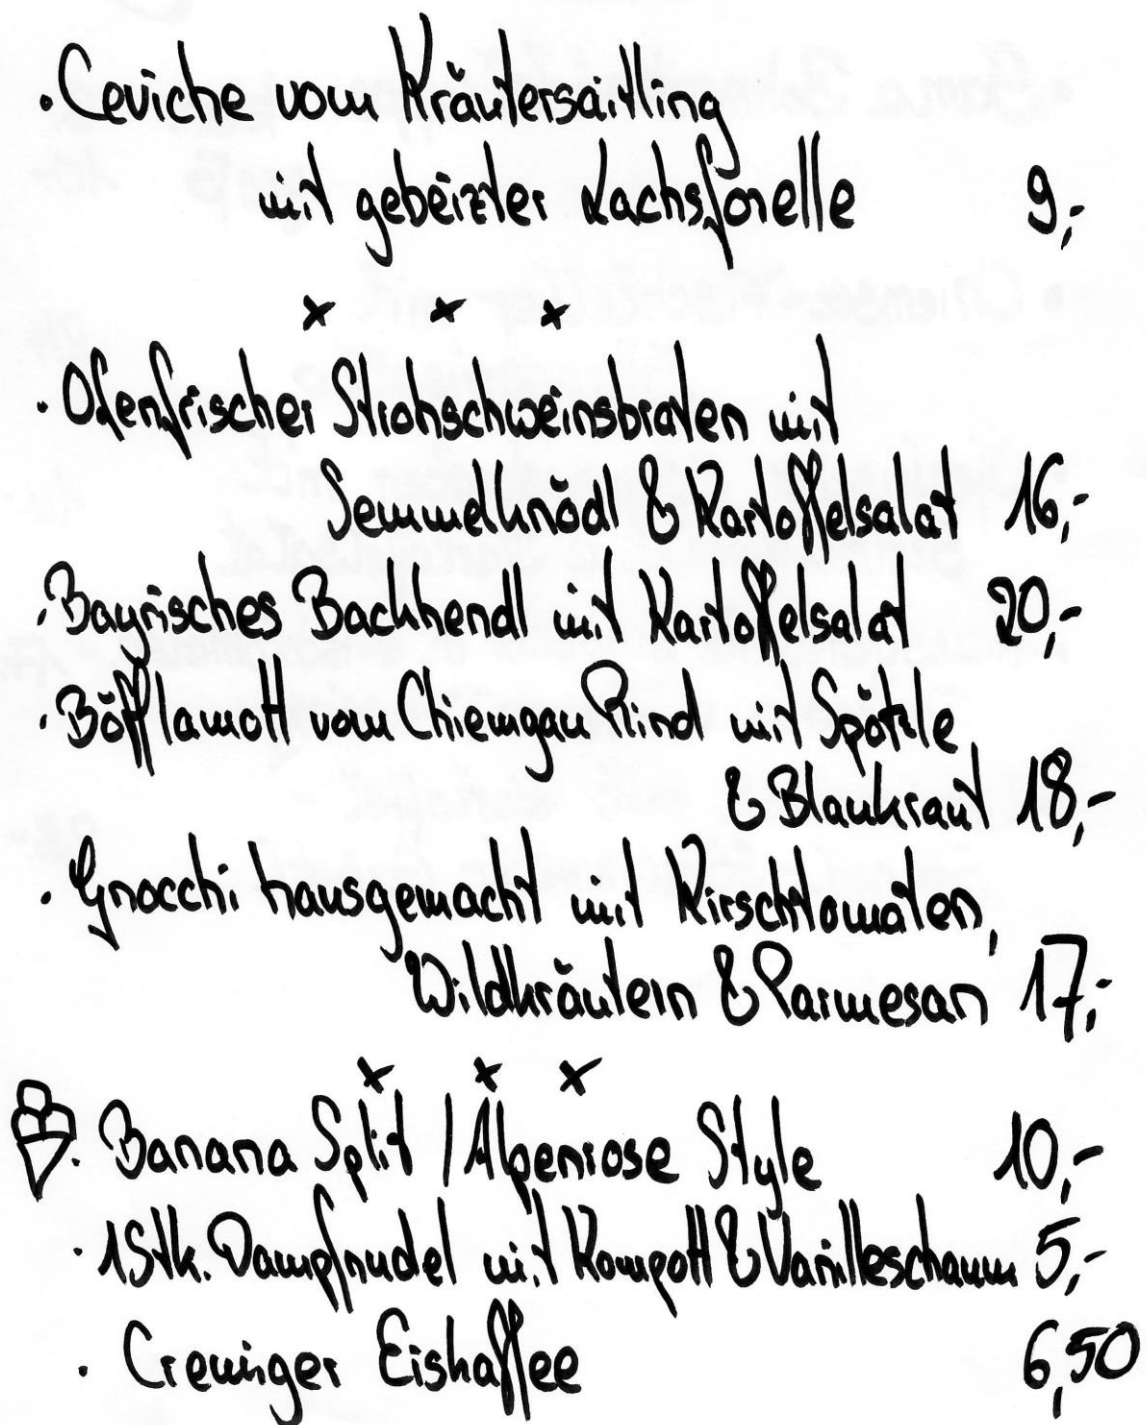 · Ceviche vom Kräutersaitling
mit gebeizter Lachsforelle 9,-
x x x
· Ofenfrischer Strohschweinsbraten mit
Semmelknödl & Kartoffelsalat 16,-
· Bayrisches Backhendl mit Kartoffelsalat 20,-
· Böfflamott vom Chiemgau Rind mit Spätzle
& Blaukraut 18,-
· Gnocchi hausgemacht mit Kirschtomaten,
Wildkräutern & Parmesan 17,-
x x x
· Banana Split / Alpenrose Style 10,-
· 1Stk. Dampfnudel mit Kompott & Vanilleschaum 5,-
· Cremiger Eiskaffee 6,50